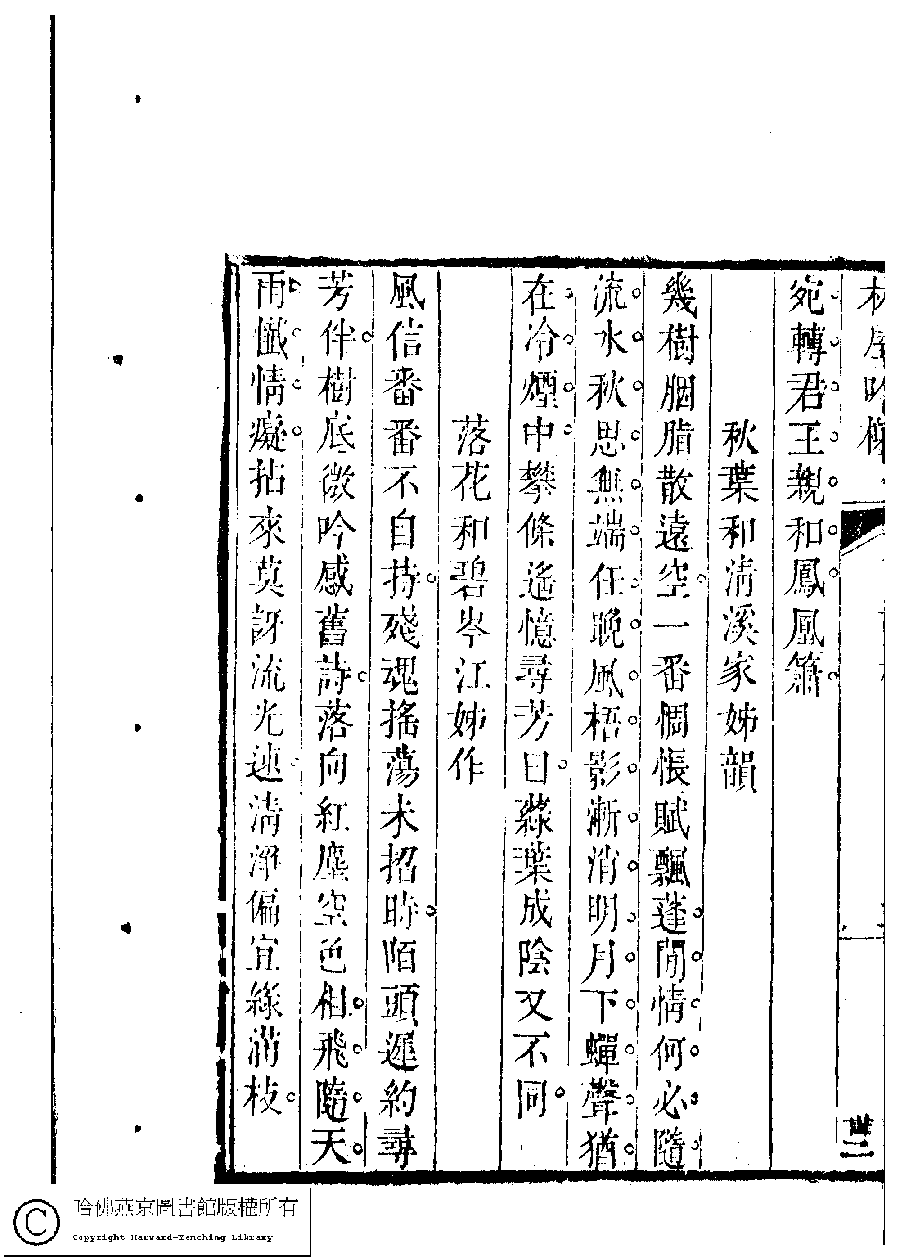 林屋吟榭
宛轉君王親和鳳凰簫
秋葉和清溪家姊韻
幾樹胭脂散遠空一番惆悵賦飄蓬閒情何必隨
流水秋思無端任晚風梧影漸消明月下蟬聲猶
在冷煙中攀條遙憶尋芳日綠葉成陰又不同
落花和碧岑江姊作
風信番番不自持殘魂搖蕩未招時陌頭遲約尋
芳伴樹底微吟感舊詩落向紅塵空色相飛隨天
雨懺情癡拈來莫訝流光速清淨偏宜綠滿枝
卅二
哈佛燕京圖書館版權所有
Copyright Harvard-Yenching Library